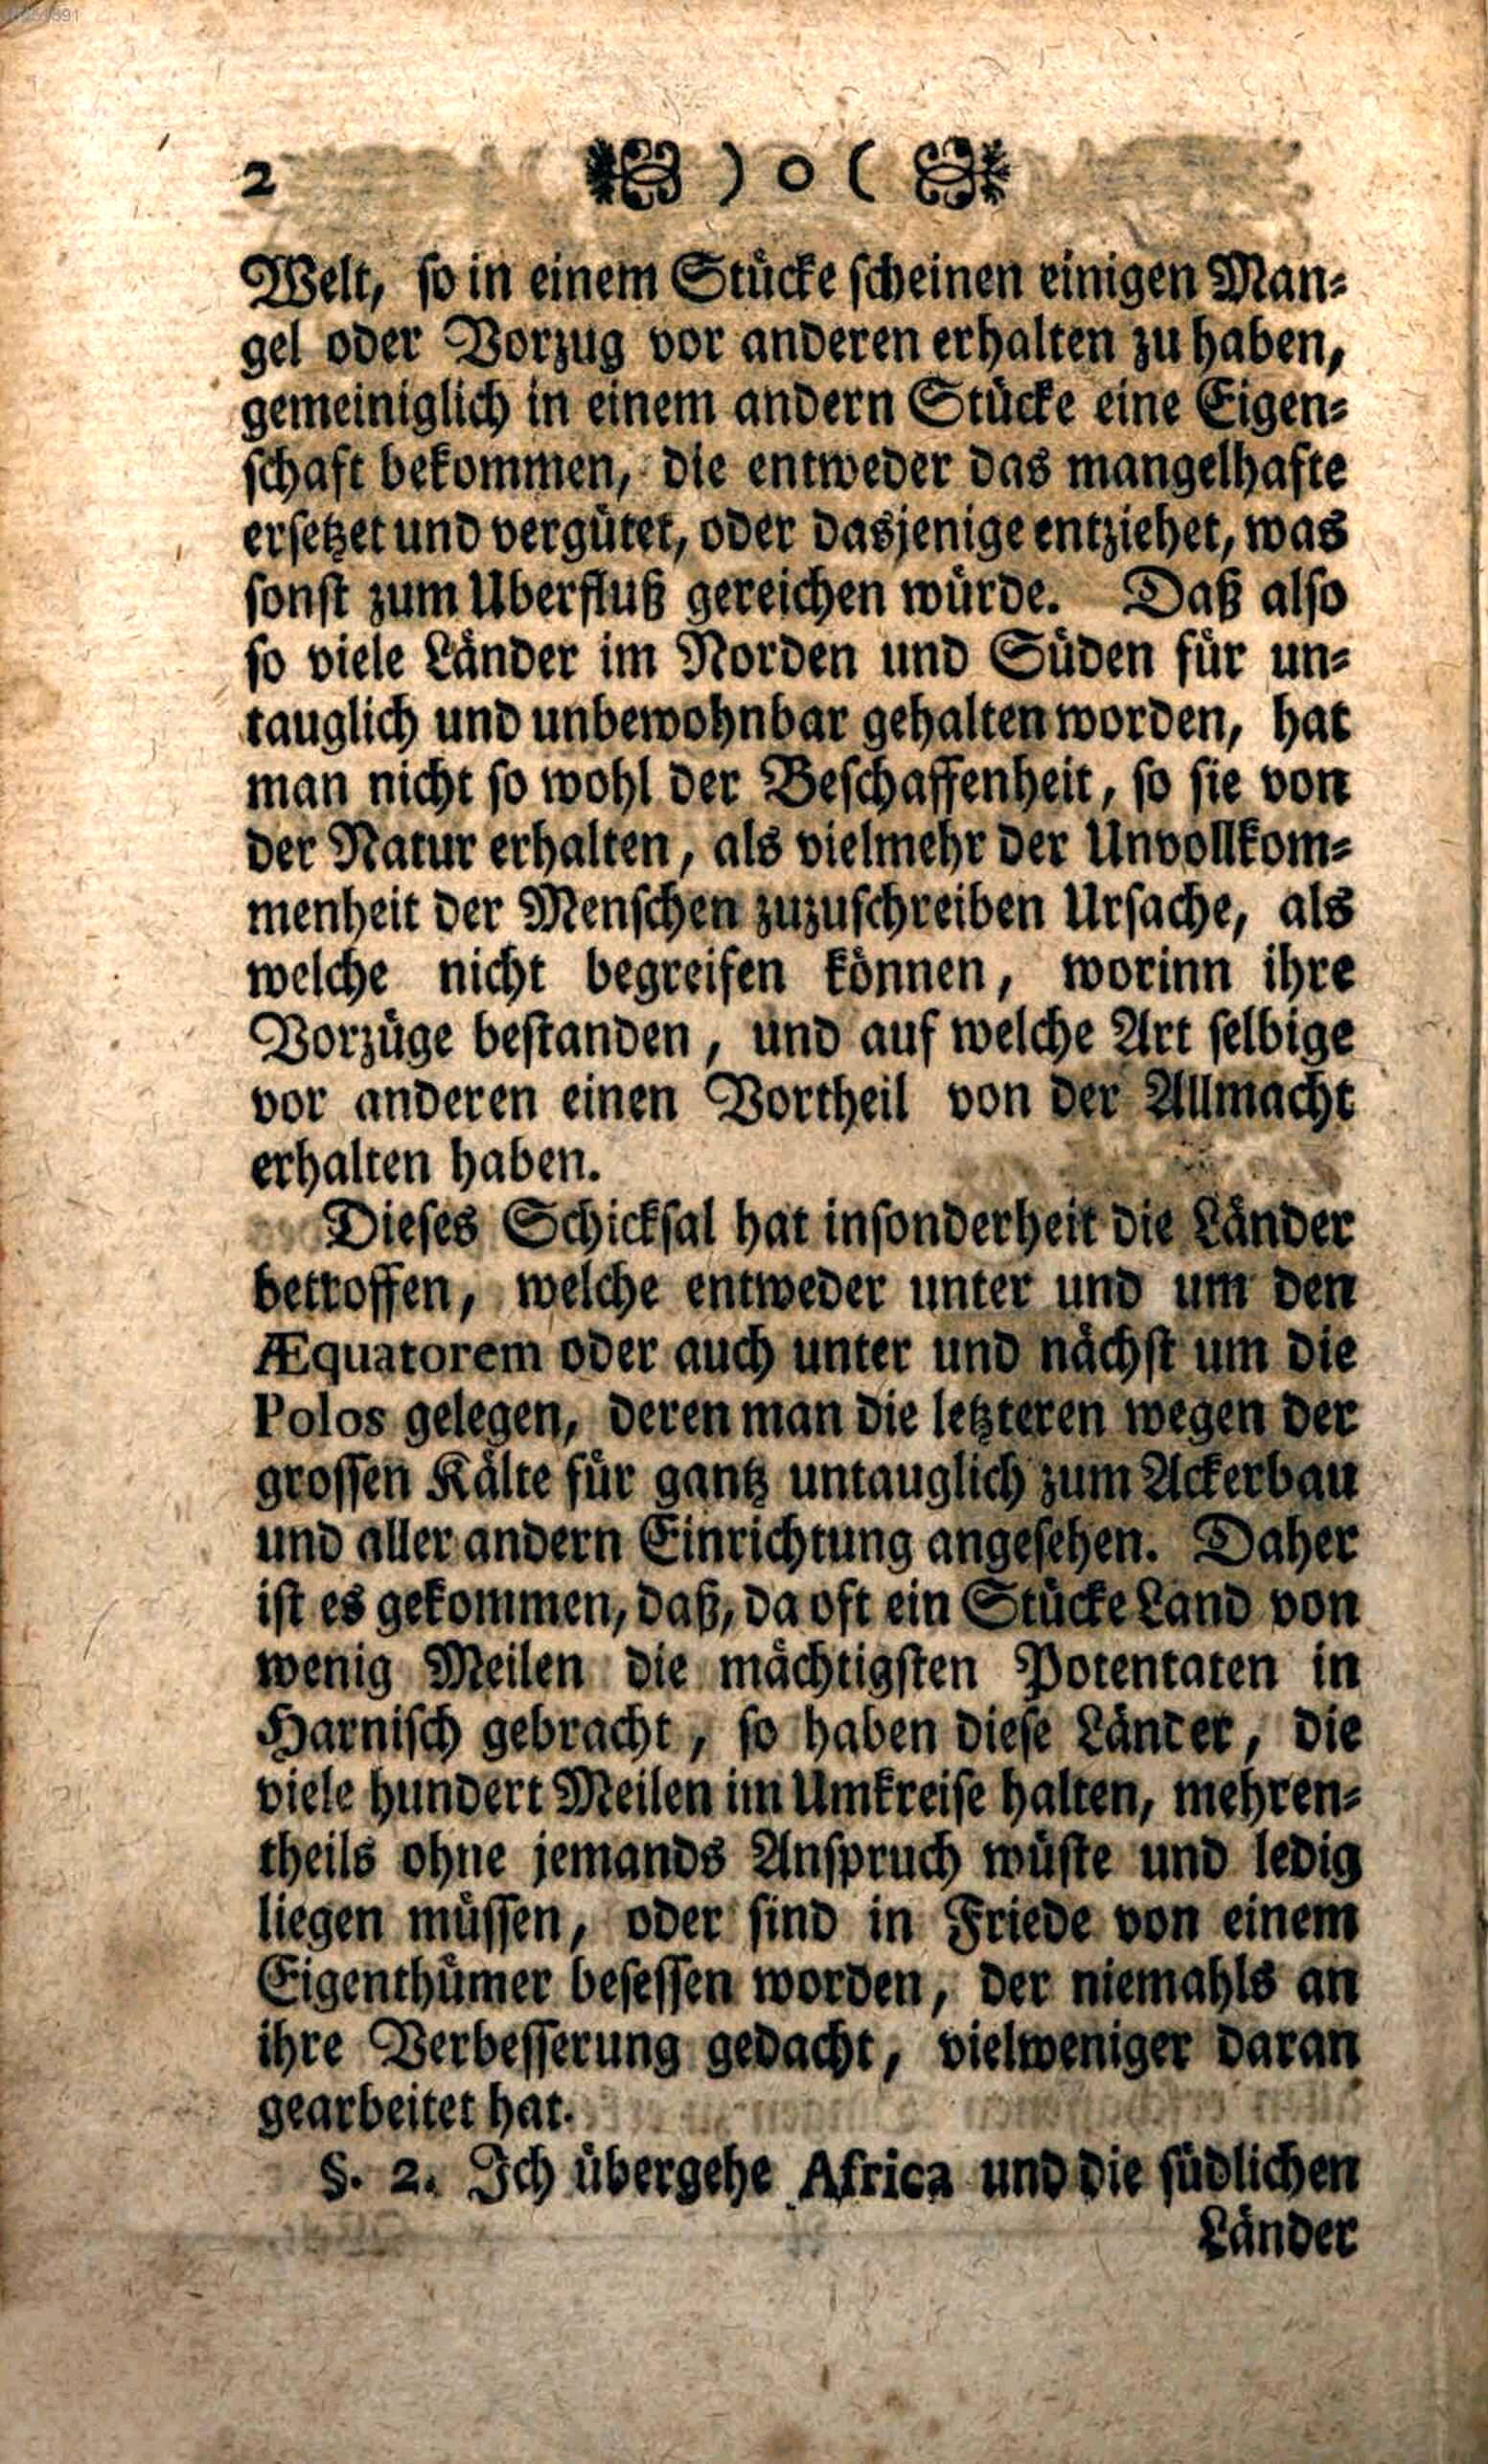 2 ) o (
Welt, so in einem Stücke scheinen einigen Man-
gel oder Vorzug vor anderen erhalten zu haben,
gemeiniglich in einem andern Stücke eine Eigen-
schaft bekommen, die entweder das mangelhafte
ersetzet und vergütet, oder dasjenige entziehet, was
sonst zum Uberfluß gereichen würde. Daß also
so viele Länder im Norden und Süden für un-
tauglich und unbewohnbar gehalten worden, hat
man nicht so wohl der Beschaffenheit, so sie von
der Natur erhalten, als vielmehr der Unvollkom-
menheit der Menschen zuzuschreiben Ursache, als
welche nicht begreifen können, worinn ihre
Vorzüge bestanden, und auf welche Art selbige
vor anderen einen Vortheil von der Allmacht
erhalten haben.
Dieses Schicksal hat insonderheit die Länder
betroffen, welche entweder unter und um den
Æquatorem oder auch unter und nächst um die
Polos gelegen, deren man die letzteren wegen der
grossen Kälte für gantz untauglich zum Ackerbau
und aller andern Einrichtung angesehen. Daher
ist es gekommen, daß, da oft ein Stücke Land von
wenig Meilen die mächtigsten Potentaten in
Harnisch gebracht, so haben diese Länder, die
viele hundert Meilen im Umkreise halten, mehren-
theils ohne jemands Anspruch wüste und ledig
liegen müssen, oder sind in Friede von einem
Eigenthümer besessen worden, der niemahls an
ihre Verbesserung gedacht, vielweniger daran
gearbeitet hat.
§. 2. Ich übergehe Africa und die südlichen
Länder